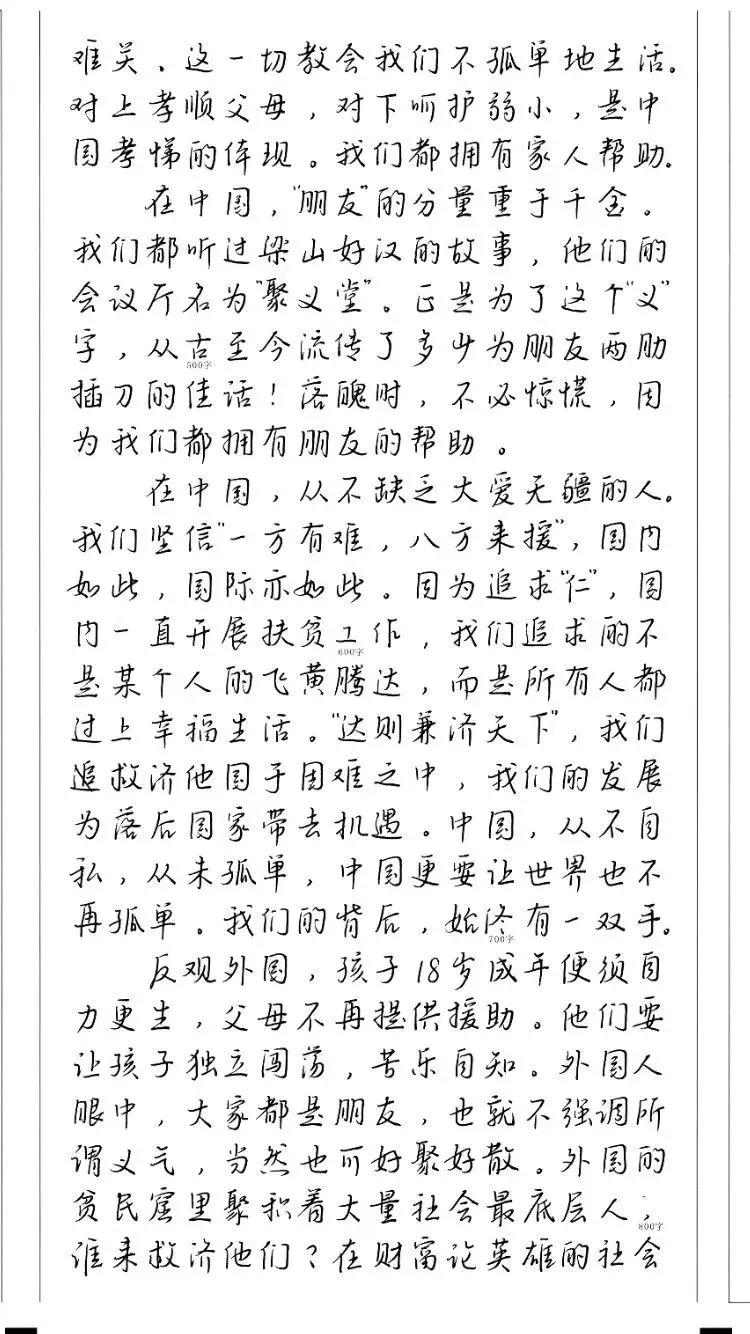 难关。这一切教会我们不孤单地生活。
对上孝顺父母，对下呵护弱小，是中
国孝悌的体现。我们都拥有家人帮助。
在中国，“朋友”的分量重于千金。
我们都听过梁山好汉的故事，他们的
会议厅名为“聚义堂”。正是为了这个“义”
字，从古至今流传了多少为朋友两肋
500字
插刀的佳话！落魄时，不必惊慌，因
为我们都拥有朋友的帮助。
在中国，从不缺乏大爱无疆的人。
我们坚信“一方有难，八方来援”，国内
如此，国际亦如此。因为追求“仁”，国
内一直开展扶贫工作，我们追求的不
600字
是某个人的飞黄腾达，而是所有人都
过上幸福生活。“达则兼济天下”，我们
追救济他国于困难之中，我们的发展
为落后国家带去机遇。中国，从不自
私，从未孤单，中国更要让世界也不
再孤单。我们的背后，始终有一双手。
700字
反观外国，孩子18岁成年便须自
力更生，父母不再提供援助。他们要
让孩子独立闯荡，苦乐自知。外国人
眼中，大家都是朋友，也就不强调所
谓义气，当然也可好聚好散。外国的
贫民窟里聚积着大量社会最底层人，
800字
谁来救济他们？在财富论英雄的社会